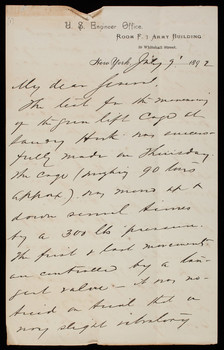 U. S. Engineer Office,
Room F. 7 Army Building
39 Whitehall Street,
New York, July 9' 1892
My dear General,
The test for the maneuvering
of the gun lift Cage at
Sandy Hook was success-
fully made on Thursday.
The cage (weighing 90 tons
approx) was moved up &
down several times
by a 300 lbs pressure.
The first & last movements
are controlled by a
valve – it was no-
ticed in trial that a
very slight vibratory